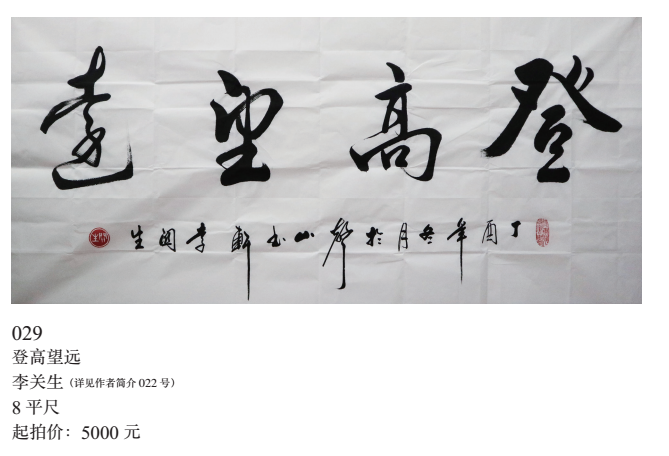 登高望遠
丁酉年冬月於山軒李関生
029
登高望远
李关生（详见作者简介 022 号）
8 平尺
起拍价：5000 元